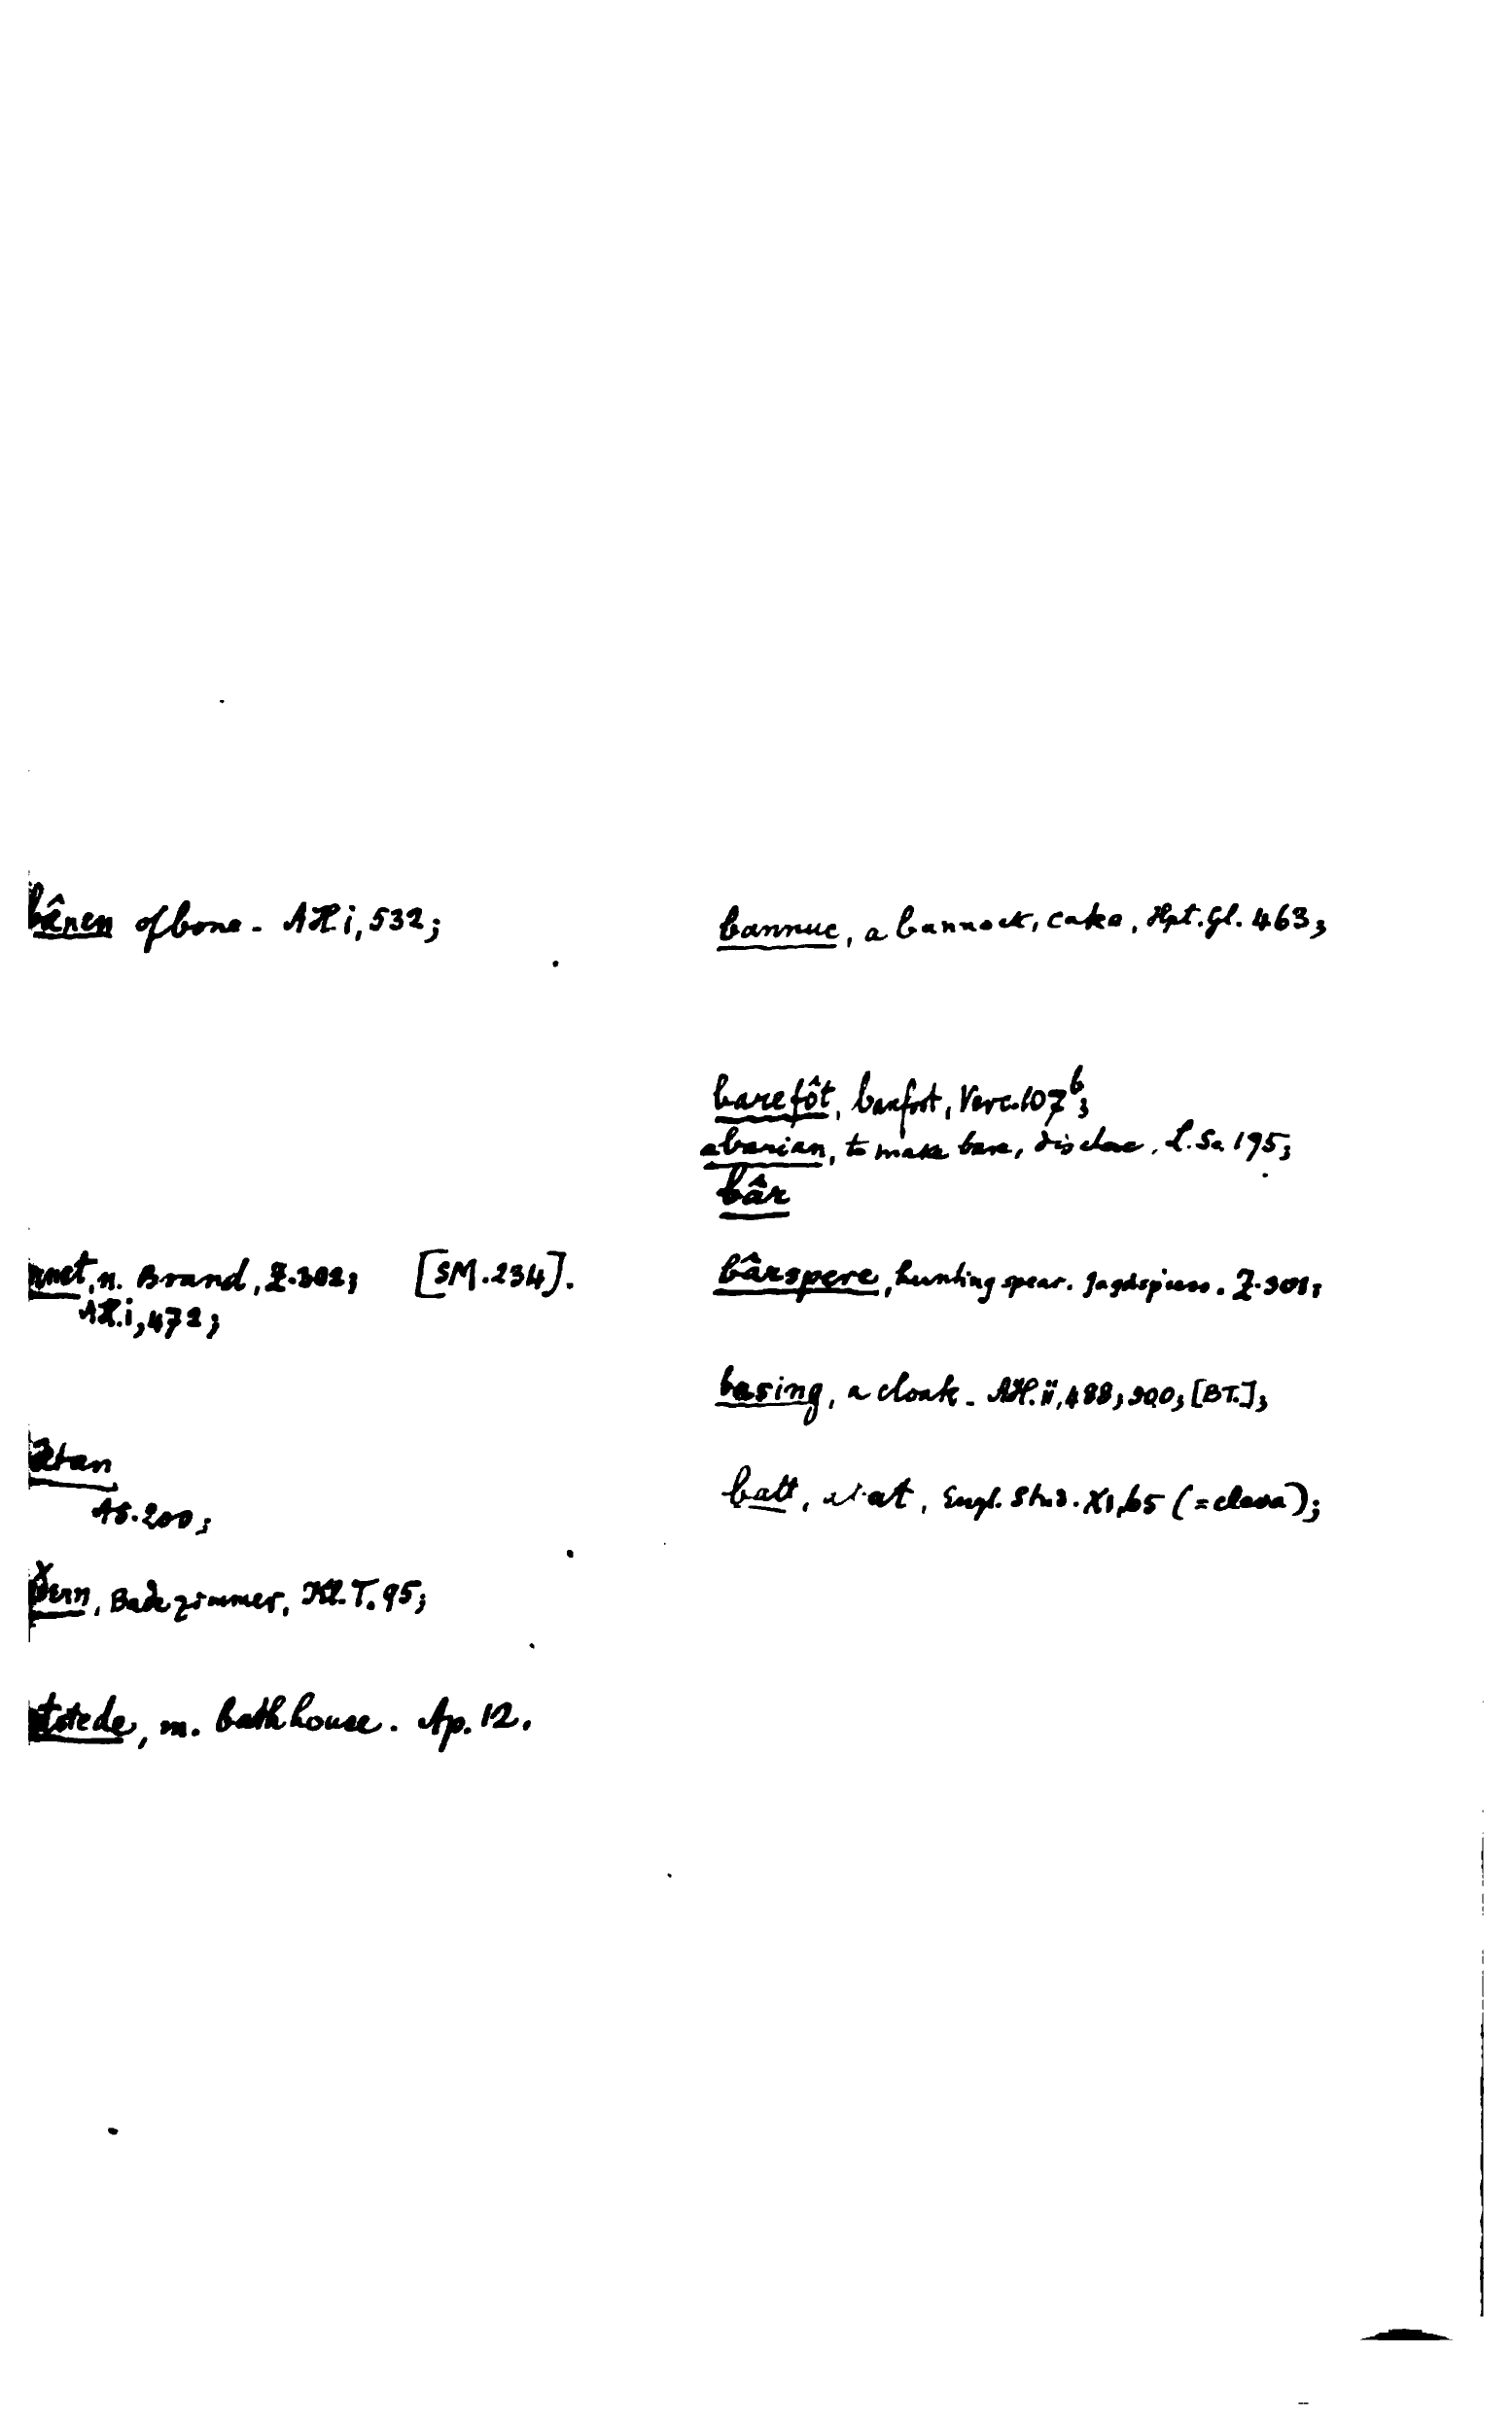 bênen of bone - AH. i, 532;
rnet, n. Brand, Z. 302; [SM. 234].
AH. i, 472;
ætan
AS. 200;
þern, Badezimmer, Kl. T. 95;
tstede, m. bath house. Ap. 12.
bannuc, a bannock, cake, Hpt. Gl. 463;
barefôt, barefoot, Verc. 107b;
abarian, to make bare, disclose, L. Sa. 195;
bâr
bârspere, hunting spear. Jagdspiess. Z. 301;
basing, a cloak - AH. ii, 488; 500; [BT.];
batt, bat, Engl. Stud. XI, 65 (= clava);